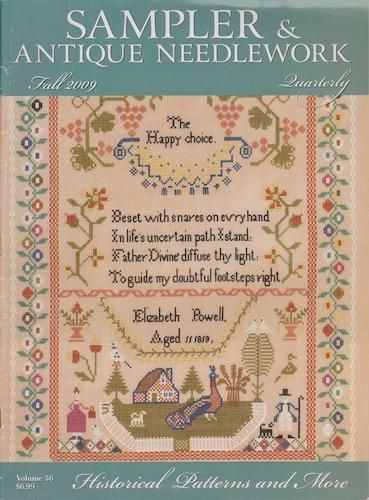 SAMPLER &
ANTIQUE NEEDLEWORK
Fall 2009
Quarterly
The
Happy choice.
Beset with snares on evry hand
In life's uncertain path I stand:
Father Divine diffuse thy light:
To guide my doubtful footsteps right
Elizabeth Powell,
Aged 11 1819.
Volume 56
$6.99
Historical Patterns and More